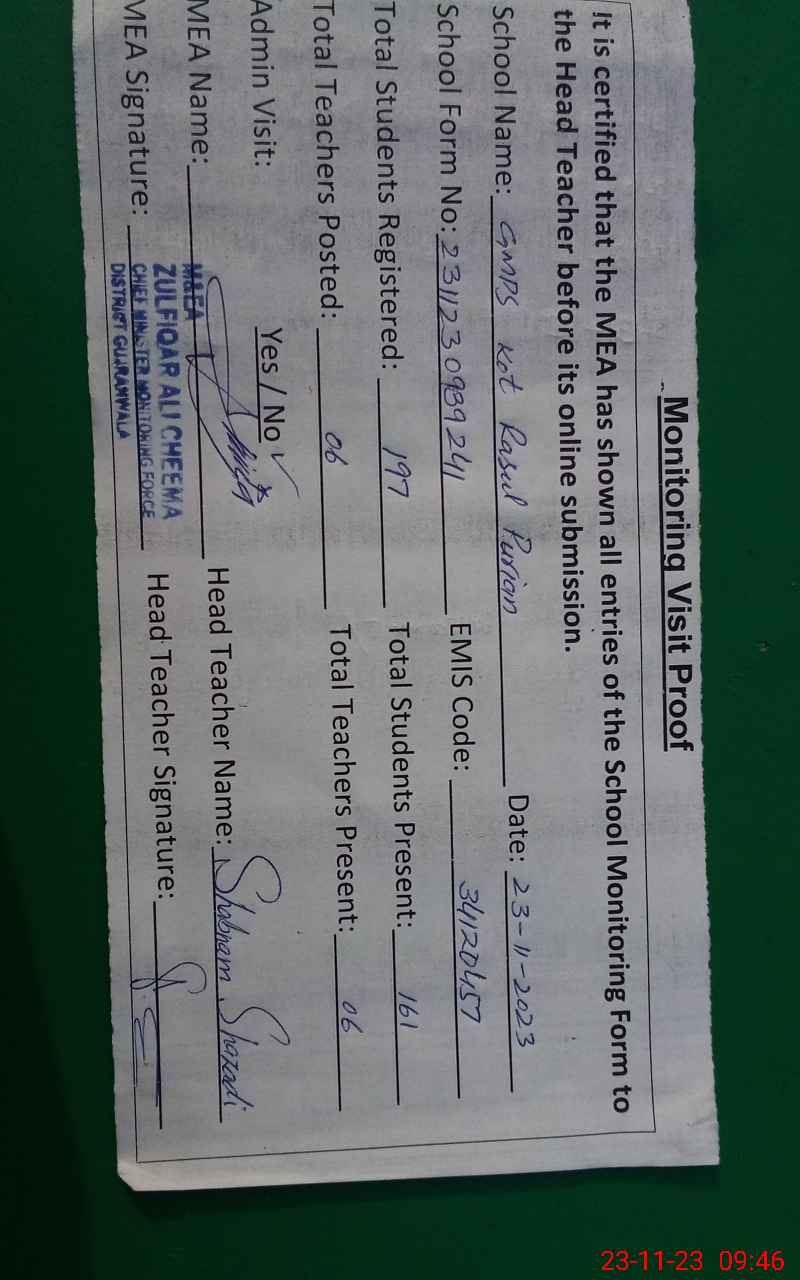 Monitoring Visit Proof
It is certified that the MEA has shown all entries of the School Monitoring Form to
the Head Teacher before its online submission.
School Name: GMPS Kot Rasul Purian Date: 23-11-2023
School Form No: 2311230939241 EMIS Code: 34120457
Total Students Registered: 197 Total Students Present: 161
Total Teachers Posted: 06 Total Teachers Present: 06
Admin Visit: Yes / No ✓
MEA Name: Head Teacher Name: Shabnam Shazadi
MEA Signature: Head Teacher Signature:
M&EA
ZULFIQAR ALI CHEEMA
CHIEF MINISTER MONITORING FORCE
DISTRICT GUJRANWALA
23-11-23 09:46